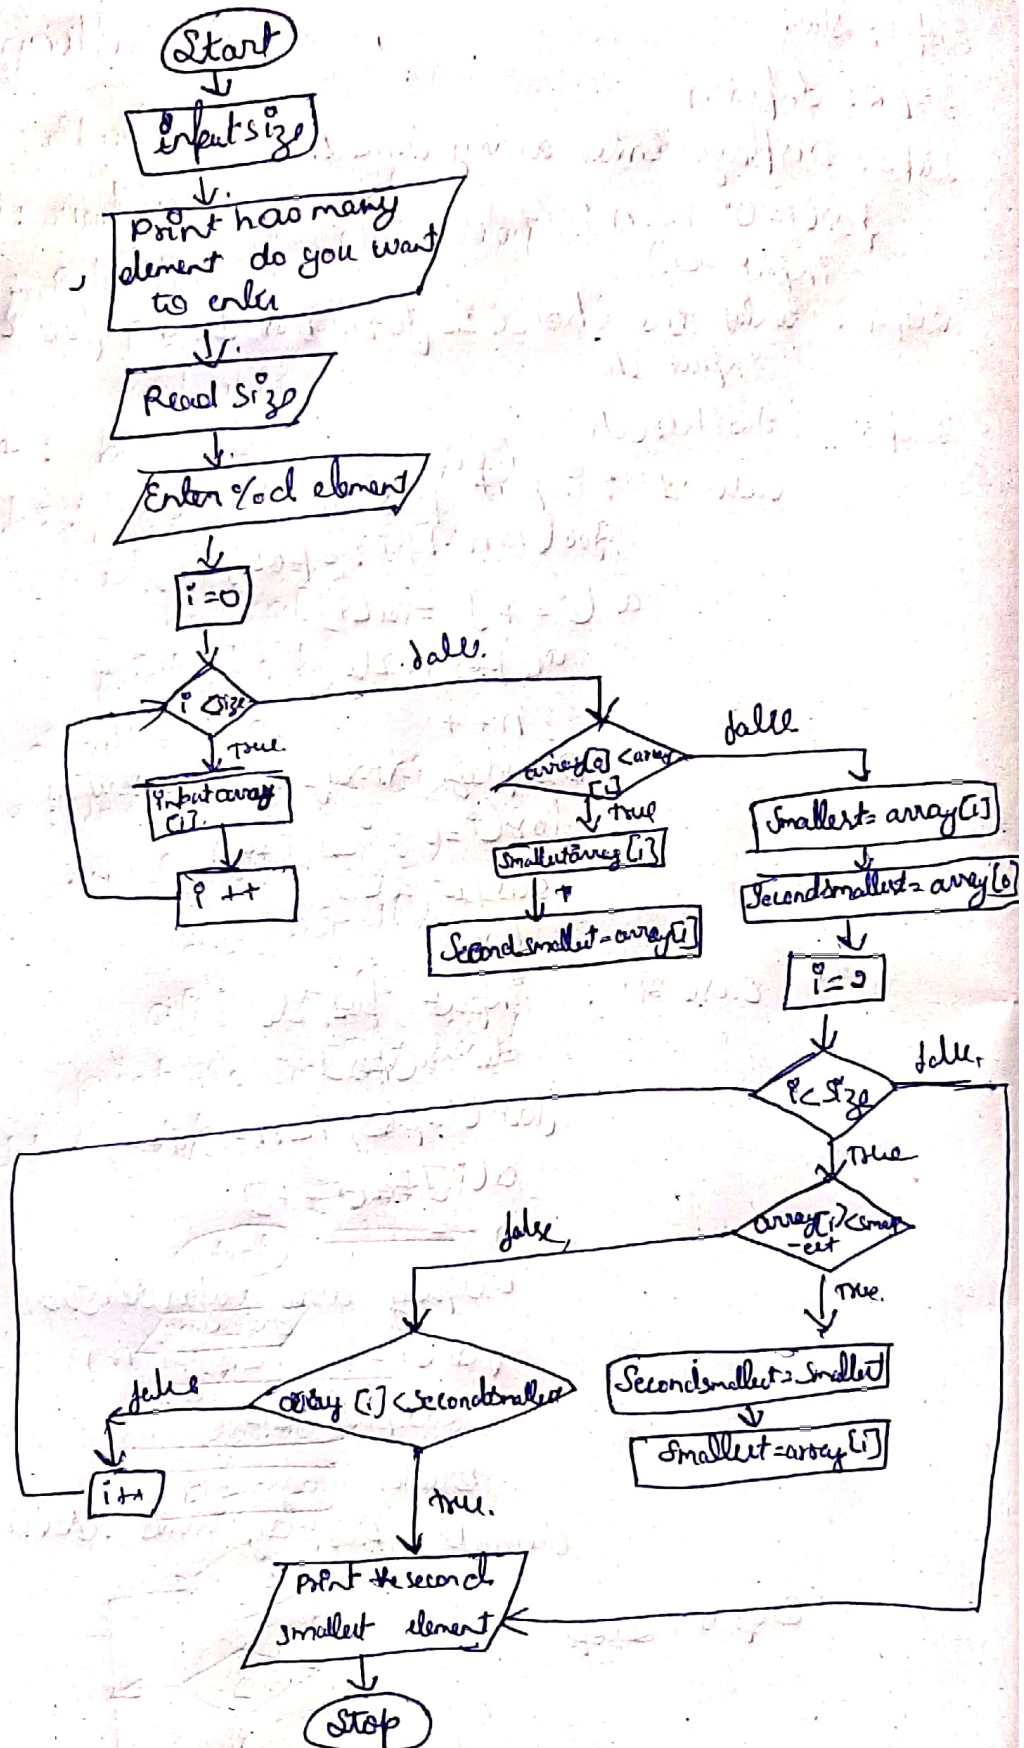 Start
input size
Print hao many
element do you want
to enter
Read Size
Enter %d element
i=0
i <size
false.
True.
input array
[i].
i ++
array[0] <array
[1]
false.
True
Smallest=array[i]
Secondsmallest=array[1]
Smallest= array[i]
Secondsmallest= array[0]
i=2
i< Size
false,
True
array[i]<small
-est
false,
True.
Secondsmallest=Smallest
Smallest=array[i]
array [i] <Secondsmallest
false
i++
true.
Print the second
smallest element
Stop